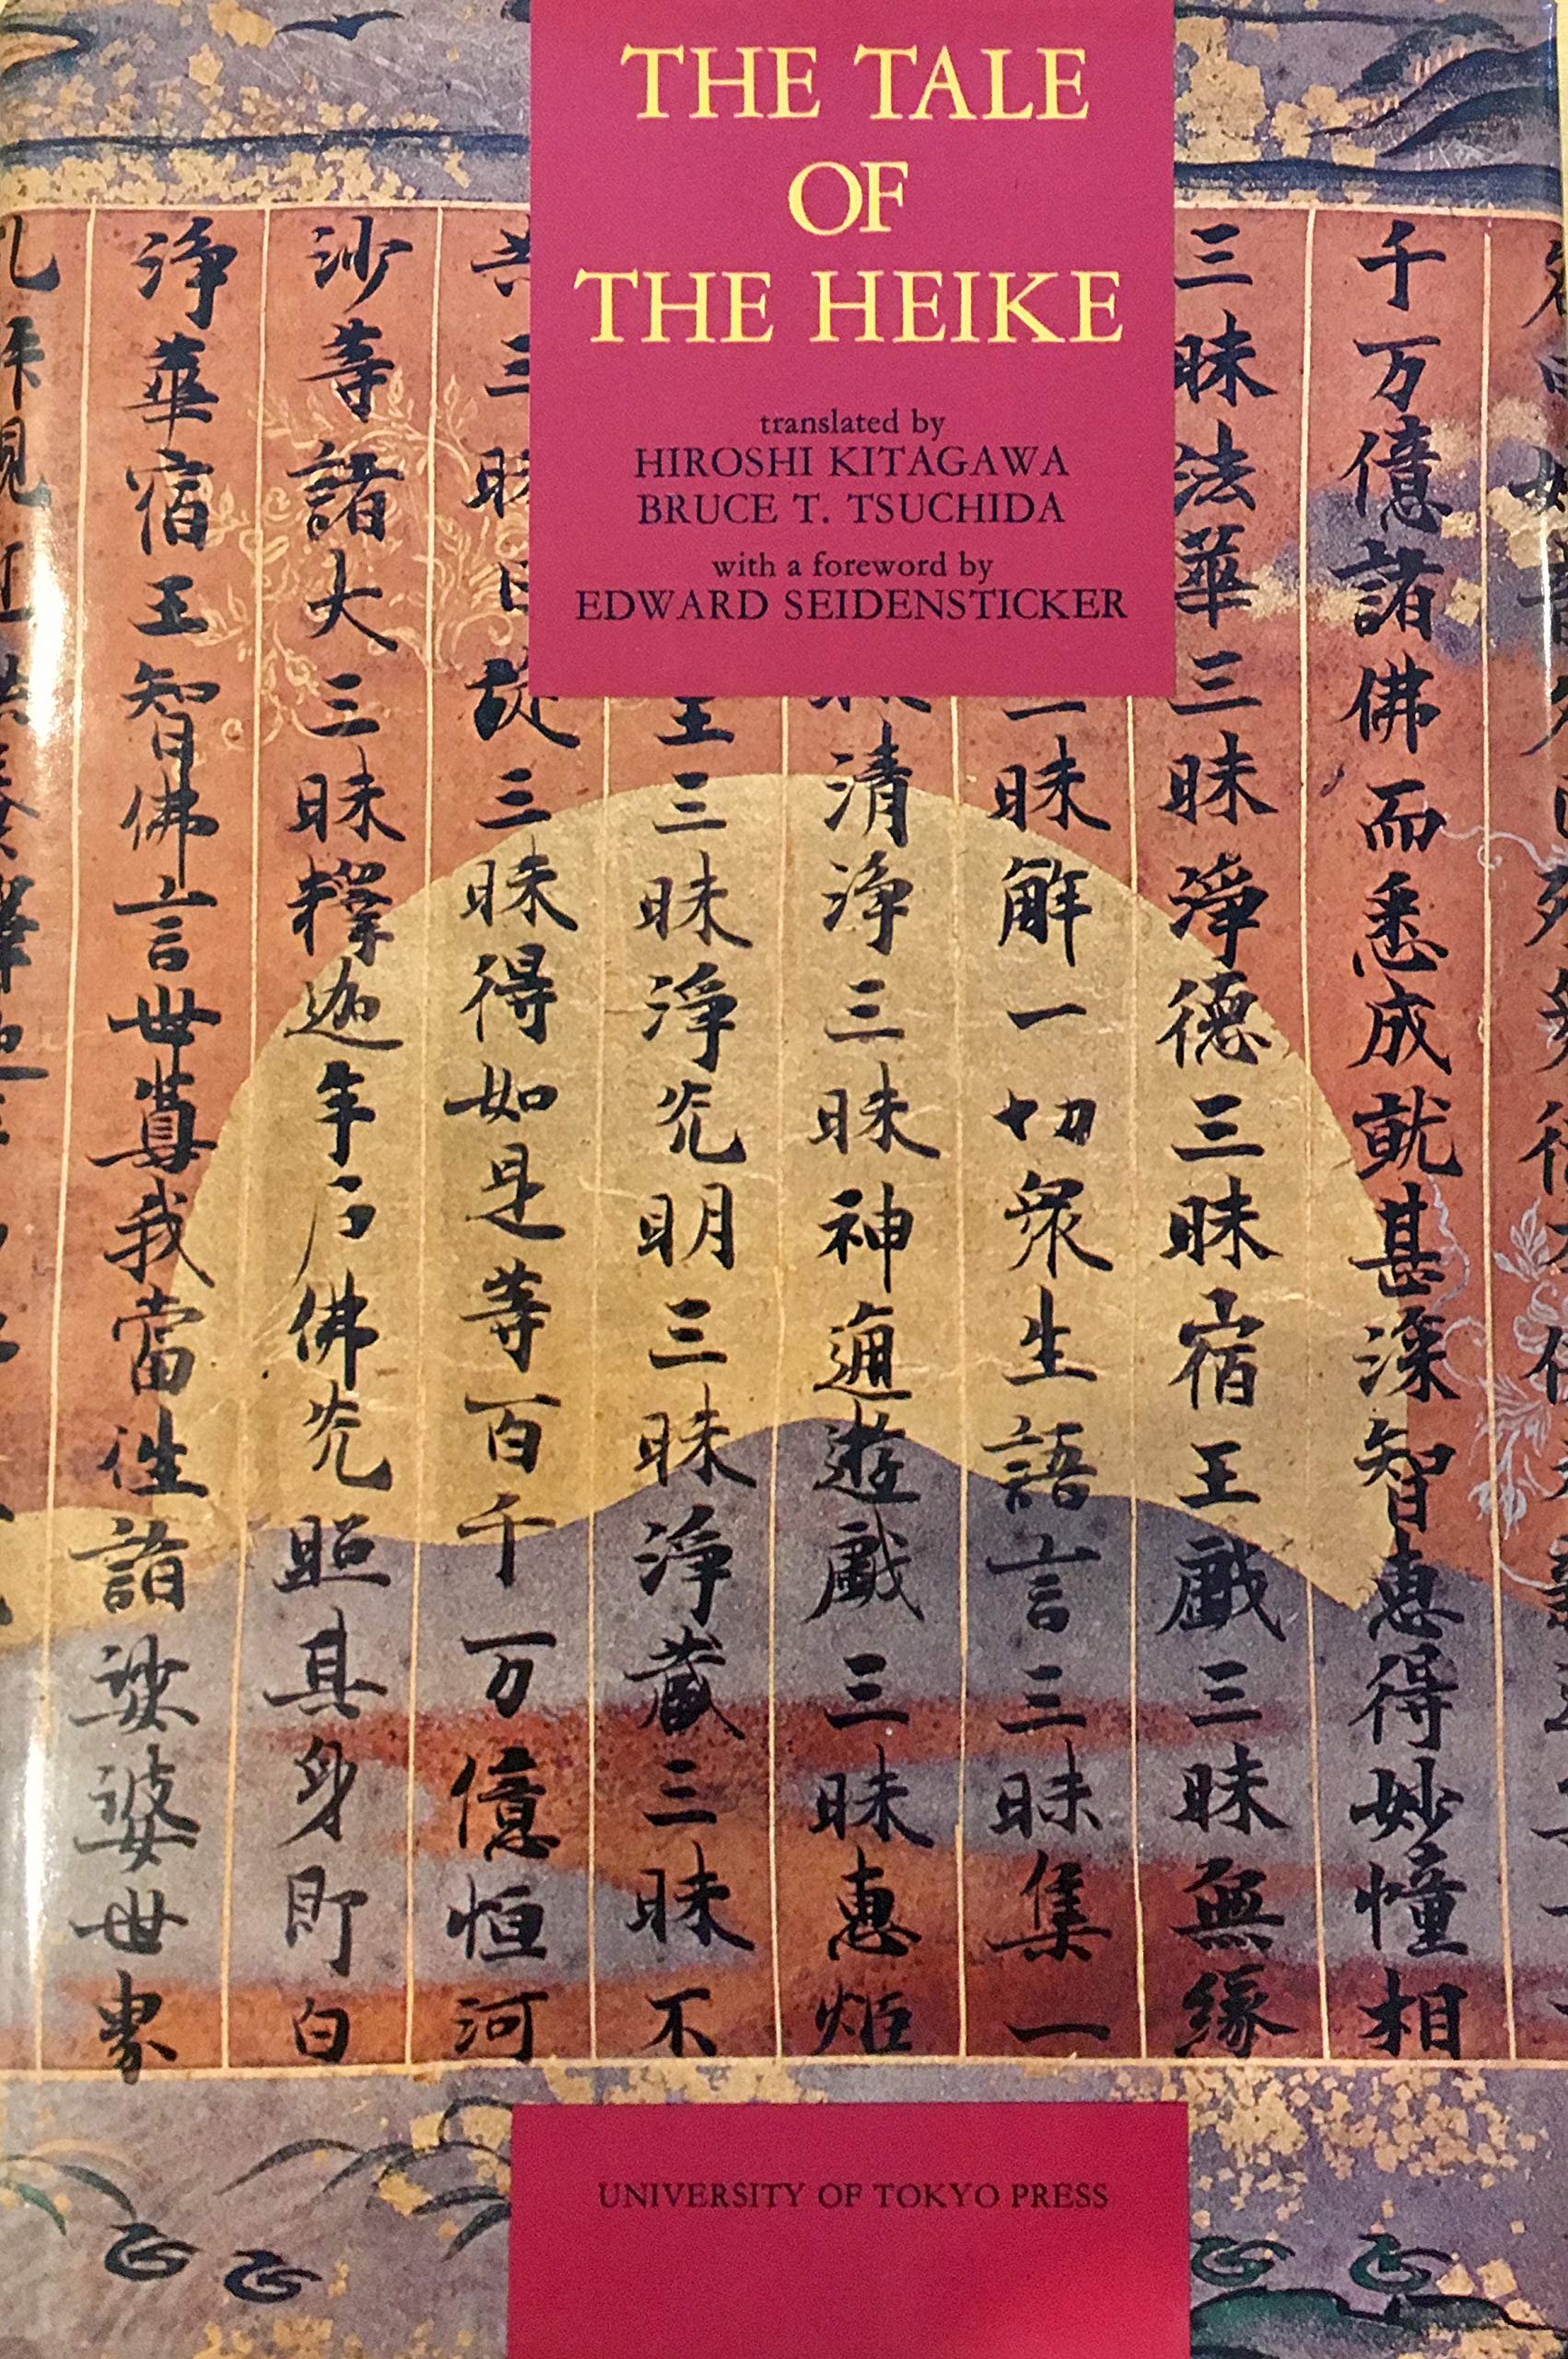 THE TALE
OF
THE HEIKE
translated by
HIROSHI KITAGAWA
BRUCE T. TSUCHIDA
with a foreword by
EDWARD SEIDENSTICKER
千万億諸佛而悉成就甚深智惠得妙幢相
三昧法華三昧淨德三昧宿王戯三昧無縁
昧解一切衆生語言三昧集一
清浄三昧神通遊戯三昧惠炬
三昧淨光明三昧淨蔵三昧不
三昧得如是等百千万億恒河
沙等諸大三昧釋迦牟尼佛光照其身即白
浄華宿王智佛言世尊我當往詣娑婆世界
UNIVERSITY OF TOKYO PRESS